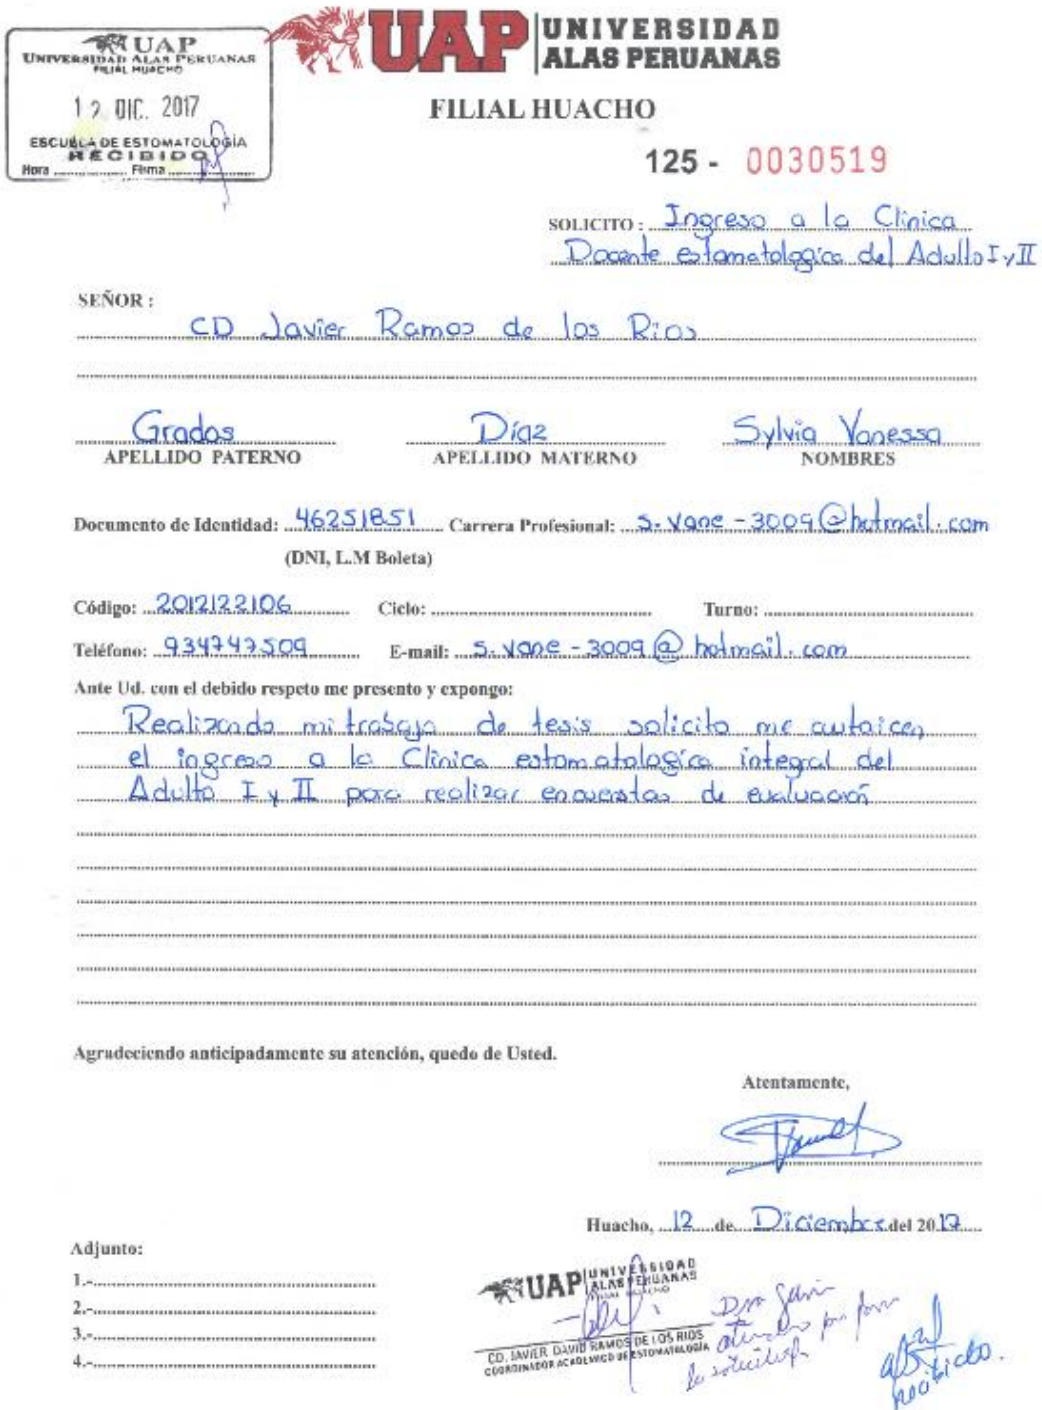 UAP
UNIVERSIDAD ALAS PERUANAS
FILIAL HUACHO
12 DIC. 2017
ESCUELA DE ESTOMATOLOGÍA
RECIBIDO
Hora ............ Firma ............
UAP UNIVERSIDAD
ALAS PERUANAS
FILIAL HUACHO
125 - 0030519
SOLICITO: Ingreso a la Clínica
Docente estomatologica del Adulto I y II
SEÑOR :
CD Javier Ramos de los Rios
Grados Díaz Sylvia Vanessa
APELLIDO PATERNO APELLIDO MATERNO NOMBRES
Documento de Identidad: 46251851 Carrera Profesional: s.vane-3009@hotmail.com
(DNI, L.M Boleta)
Código: 2012122106 Ciclo: ............ Turno: ............
Teléfono: 934747509 E-mail: s.vane-3009@hotmail.com
Ante Ud. con el debido respeto me presento y expongo:
Realizando mi trabajo de tesis solicito me autoicen
el ingreso a la Clínica estomatologica integral del
Adulto I y II para realizar encuestas de evaluación
Agradeciendo anticipadamente su atención, quedo de Usted.
Atentamente,
Huacho, 12 de Diciembre del 2017
Adjunto:
1.-
2.-
3.-
4.-
UAP UNIVERSIDAD
ALAS PERUANAS
FILIAL HUACHO
CD. JAVIER DAVID RAMOS DE LOS RIOS
COORDINADOR ACADEMICO DE ESTOMATOLOGÍA
por favor
recibido.